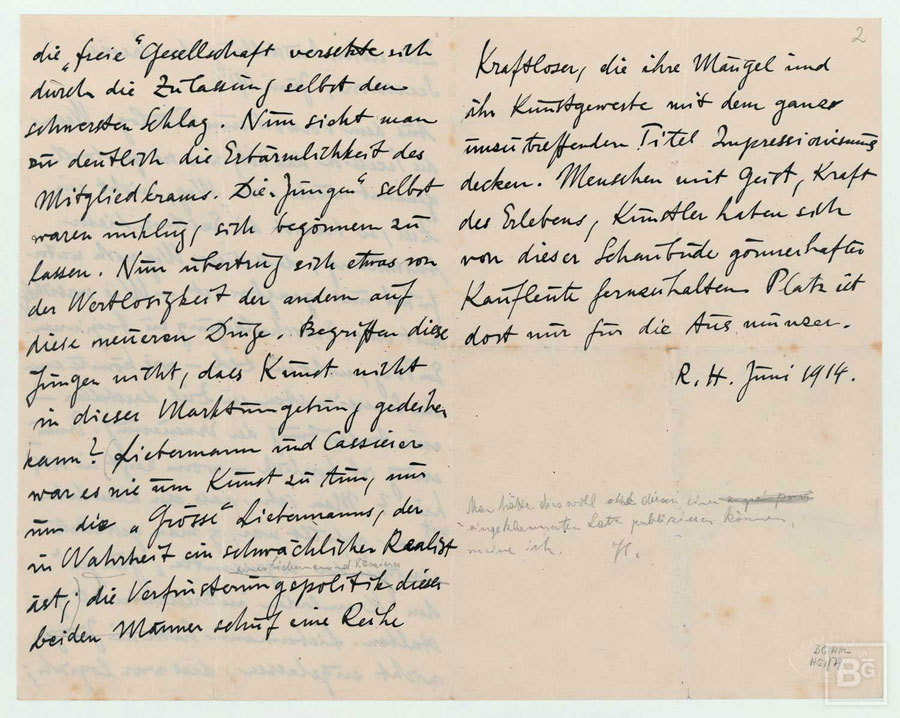 die „freie“ Gesellschaft versetzte sich
durch die Zulassung selbst den
schwersten Schlag. Nun sieht man
zu deutlich die Erbärmlichkeit des
Mitgliedkrams. Die „Jungen“ selbst
waren unklug, sich begönnern zu
lassen. Nun übertrug sich etwas von
der Wertlosigkeit der andern auf
diese neueren Dinge. Begriffen diese
Jungen nicht, dass Kunst nicht
in dieser Marktumgebung gedeihen
kann? (Liebermann und Cassierer
war es nie um Kunst zu tun, nur
um die „Grösse“ Liebermanns, der
in Wahrheit ein schwächlicher Realist
ist; die Verfinsterungspolitik dieser
beiden Männer schuf eine Reihe
2
Kraftloser, die ihre Mängel und
ihr Kunstgewerbe mit dem ganz
unzutreffenden Titel Impressionismus
decken. Menschen mit Geist, Kraft
des Erlebens, Künstler haben sich
von dieser Schaubude gönnerhafter
Kaufleute fernzuhalten. Platz ist
dort nur für die Ausmünzer.
R. H. Juni 1914.
Man hätte dies wohl ohne diesen einen
eingeklammerten Satz publizieren können,
meine ich. H.
BG